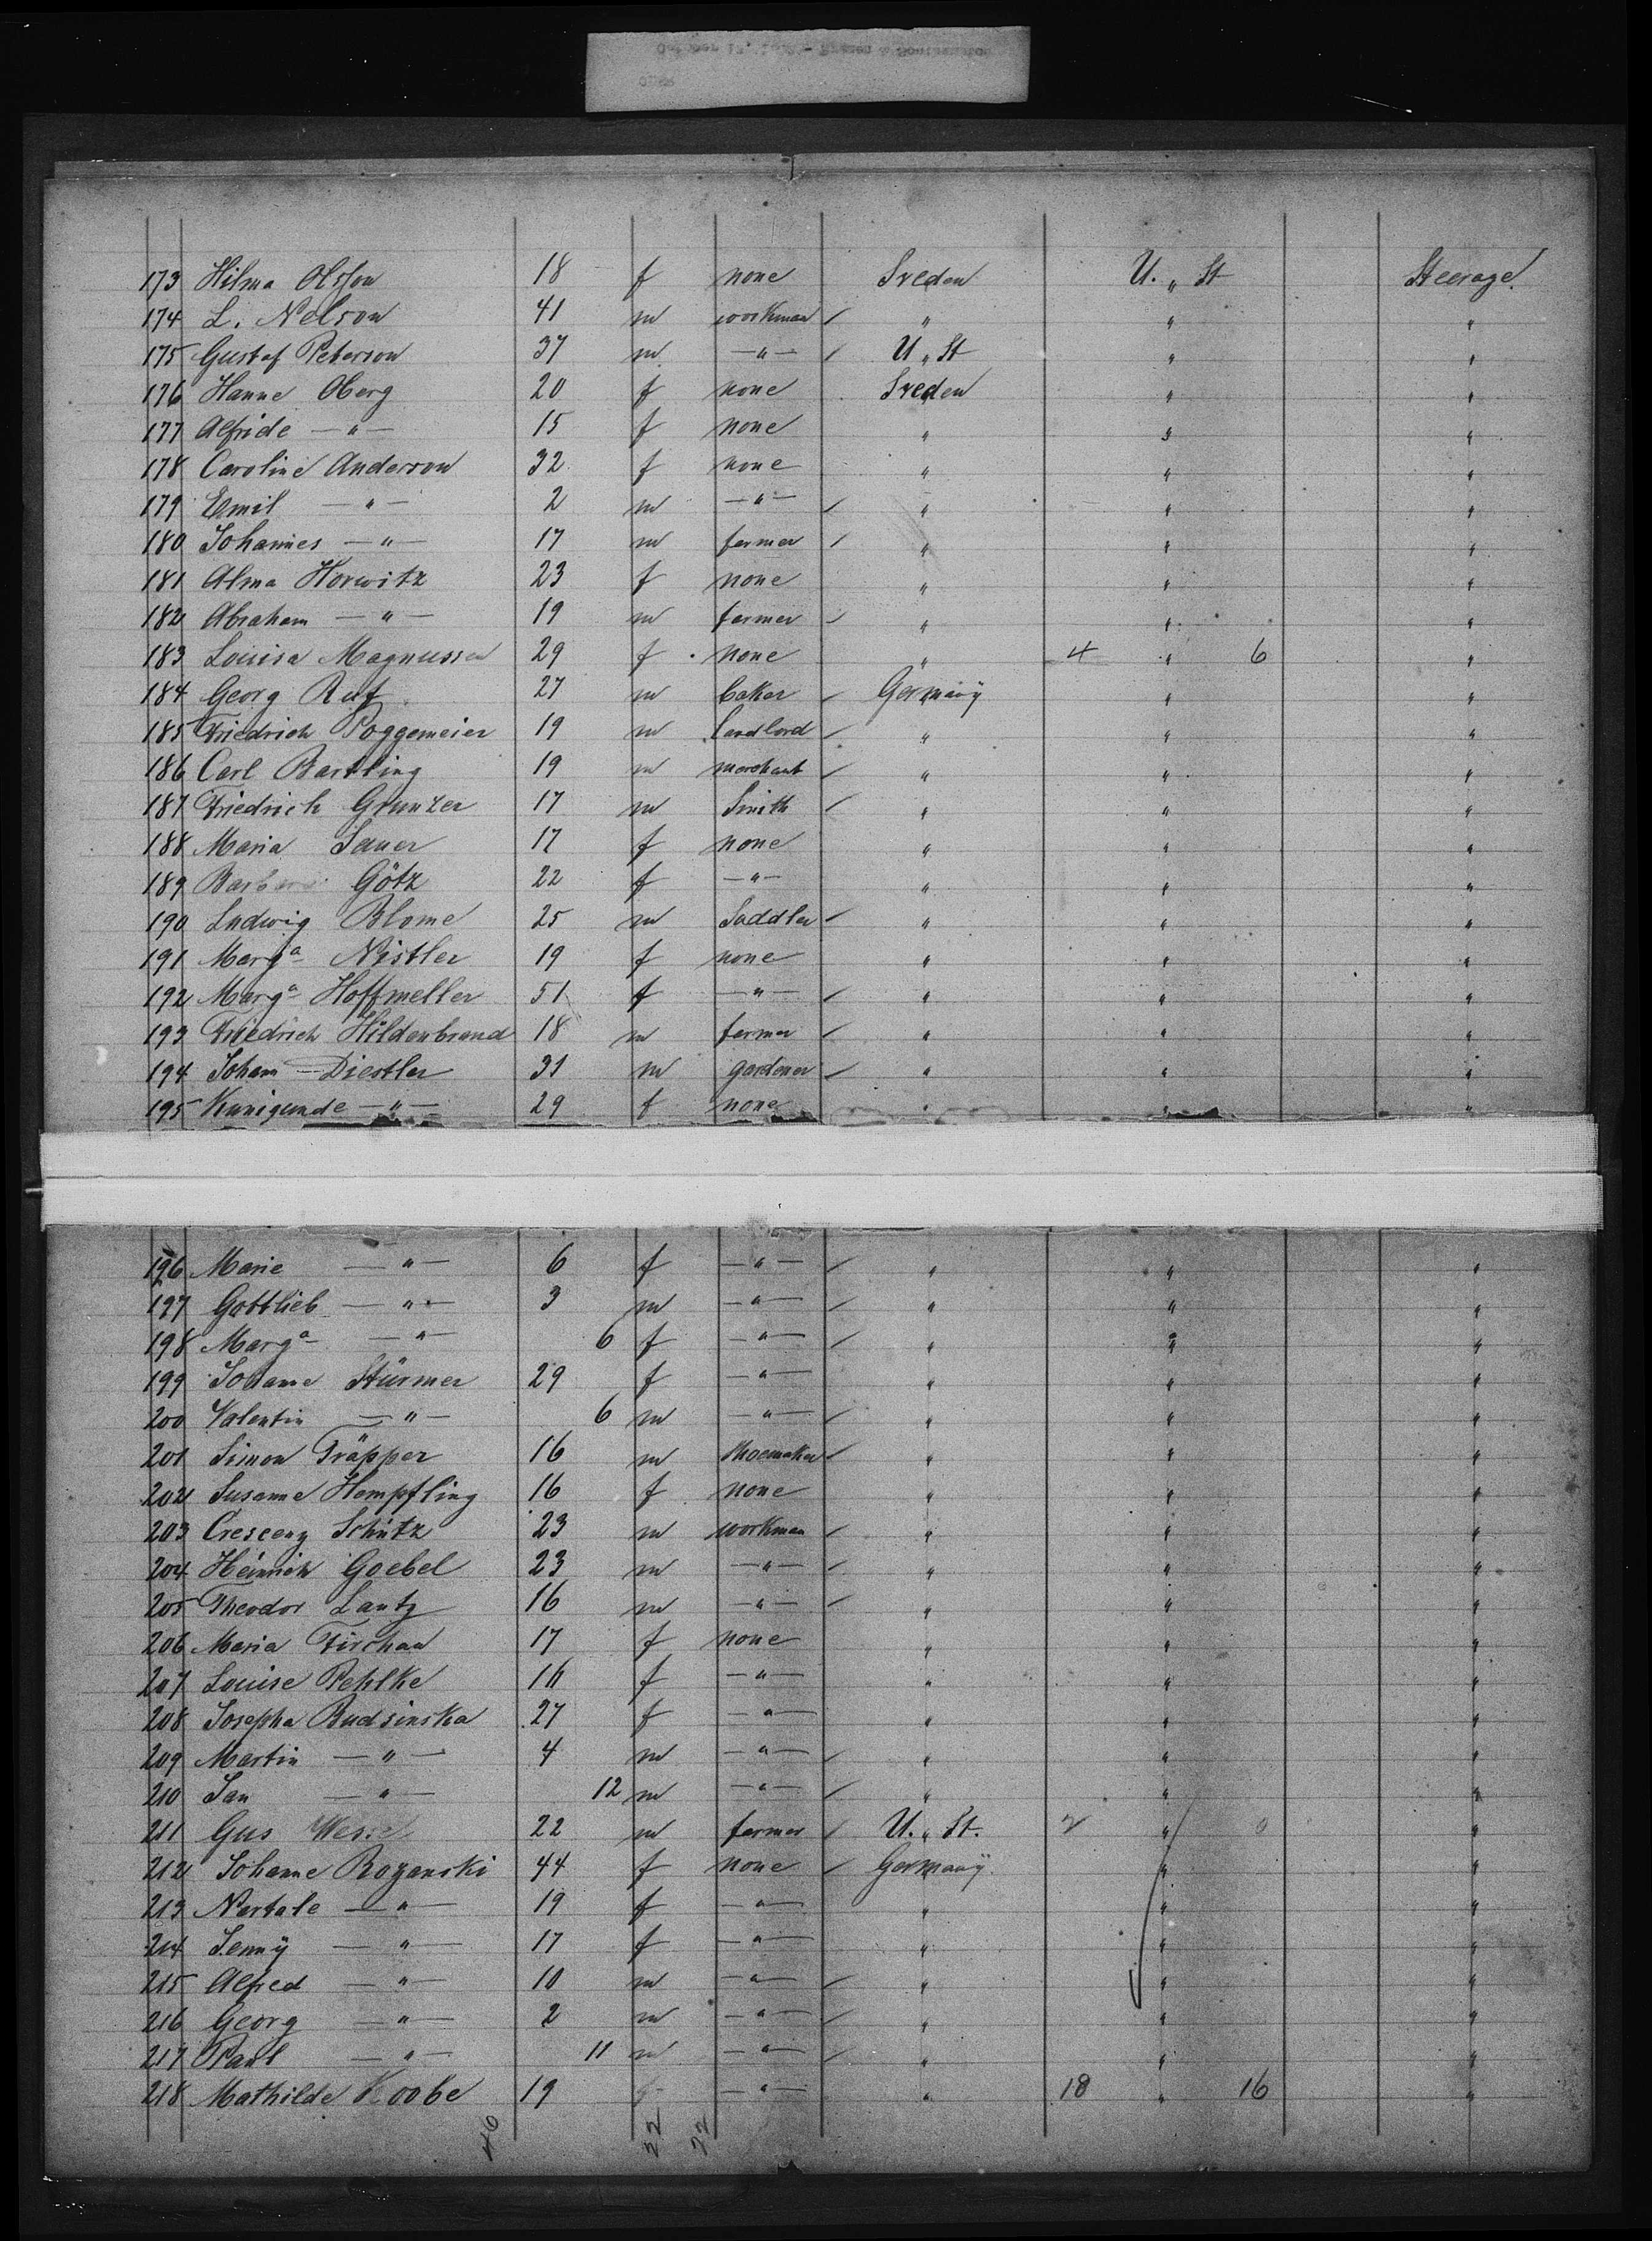 173 Hilma Olsson 18 f none Sveden U. " St Steerage.
174 L. Nelson 41 m workman " " "
175 Gustaf Peterson 37 m —"— U " St " "
176 Hanne Oberg 20 f none Sveden " "
177 Alfride —"— 15 f none " " "
178 Caroline Anderson 32 f none " " "
179 Emil —"— 2 m —"— " " "
180 Johannes —"— 17 m farmer " " "
181 Alma Horwitz 23 f none " " "
182 Abraham —"— 19 m farmer " " "
183 Louisa Magnussen 29 f none " 4 " 6 "
184 Georg Ruf 27 m baker Germany " "
185 Friedrich Poggemeier 19 m Landlord " " "
186 Carl Bartling 19 m merchant " " "
187 Friedrich Grunzer 17 m Smith " " "
188 Maria Sauer 17 f none " " "
189 Barbara Götz 22 f —"— " " "
190 Ludwig Blome 25 m Saddler " " "
191 Marga Nistler 19 f none " " "
192 Marga Hoffmeller 51 f —"— " " "
193 Friedrich Hildenbrand 18 m farmer " " "
194 Johann Diestler 31 m gardener " " "
195 Kunigunde —"— 29 f none " " "
196 Marie —"— 6 f —"— " " "
197 Gottlieb —"— 3 m —"— " " "
198 Marga —"— 6 f —"— " " "
199 Johanne Stürmer 29 f —"— " " "
200 Valentin —"— 6 m —"— " " "
201 Simon Träpper 16 m shoemaker " " "
202 Susanne Hempfling 16 f none " " "
203 Crescenz Schütz 23 m workman " " "
204 Heinrich Goebel 23 m —"— " " "
205 Theodor Lantz 16 m —"— " " "
206 Maria Firchau 17 f none " " "
207 Louise Pehlke 16 f —"— " " "
208 Josepha Budsinska 27 f —"— " " "
209 Martin —"— 4 m —"— " " "
210 Jan —"— 12 m —"— " " "
211 Gus 22 m farmer U. " St. 2 " 0 "
212 Johanne Rozanski 44 f none Germany " "
213 Nartale —"— 19 f —"— " " "
214 Jenny —"— 17 f —"— " " "
215 Alfred —"— 10 m —"— " " "
216 Georg —"— 2 m —"— " " "
217 Paul —"— 11 m —"— " " "
218 Mathilde Koobe 19 f —"— " 18 " 16 "
46 22 22